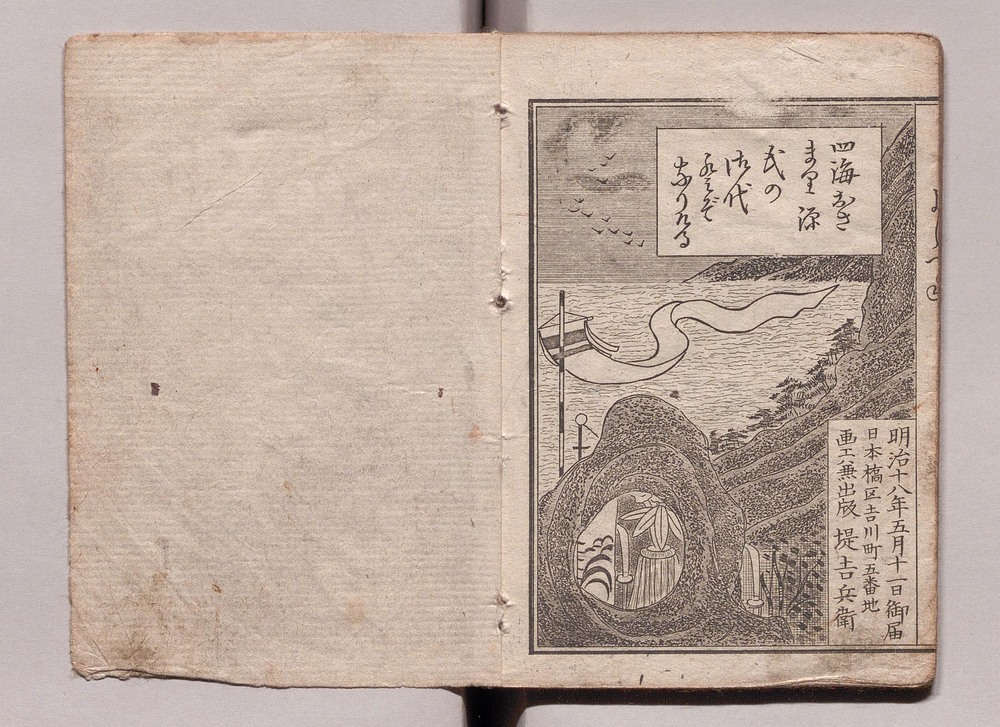 四海おさ
まり源
氏の
御代
なりける
明治十八年五月十一日御届
日本橋区吉川町五番地
画工兼出版 堤吉兵衛